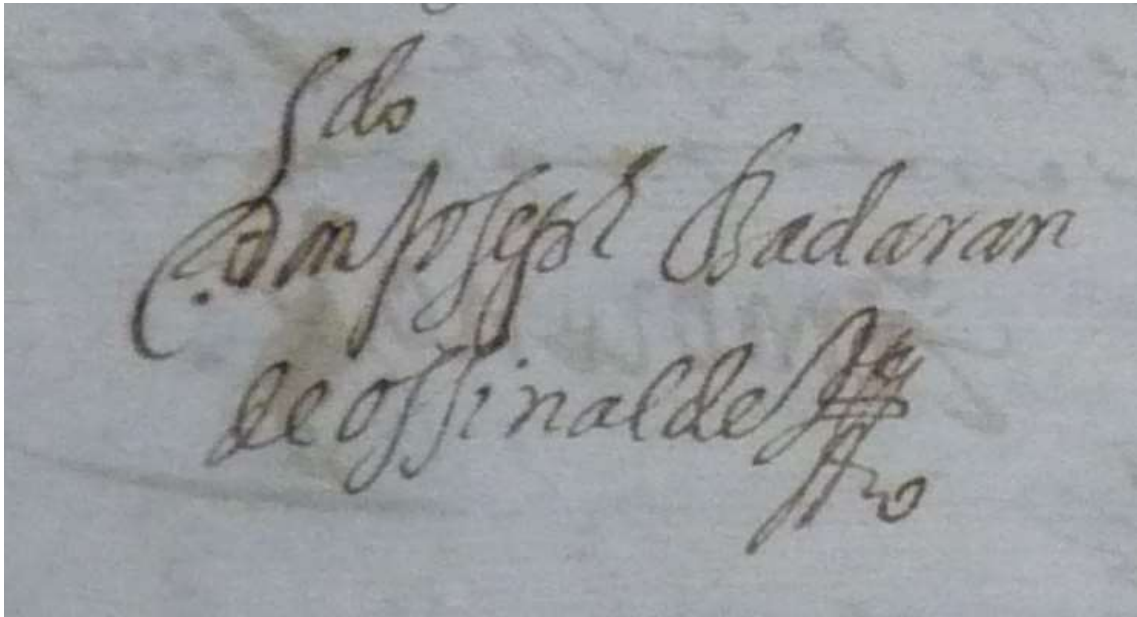 Ldo
Don Joseph Badaran
de ossinalde